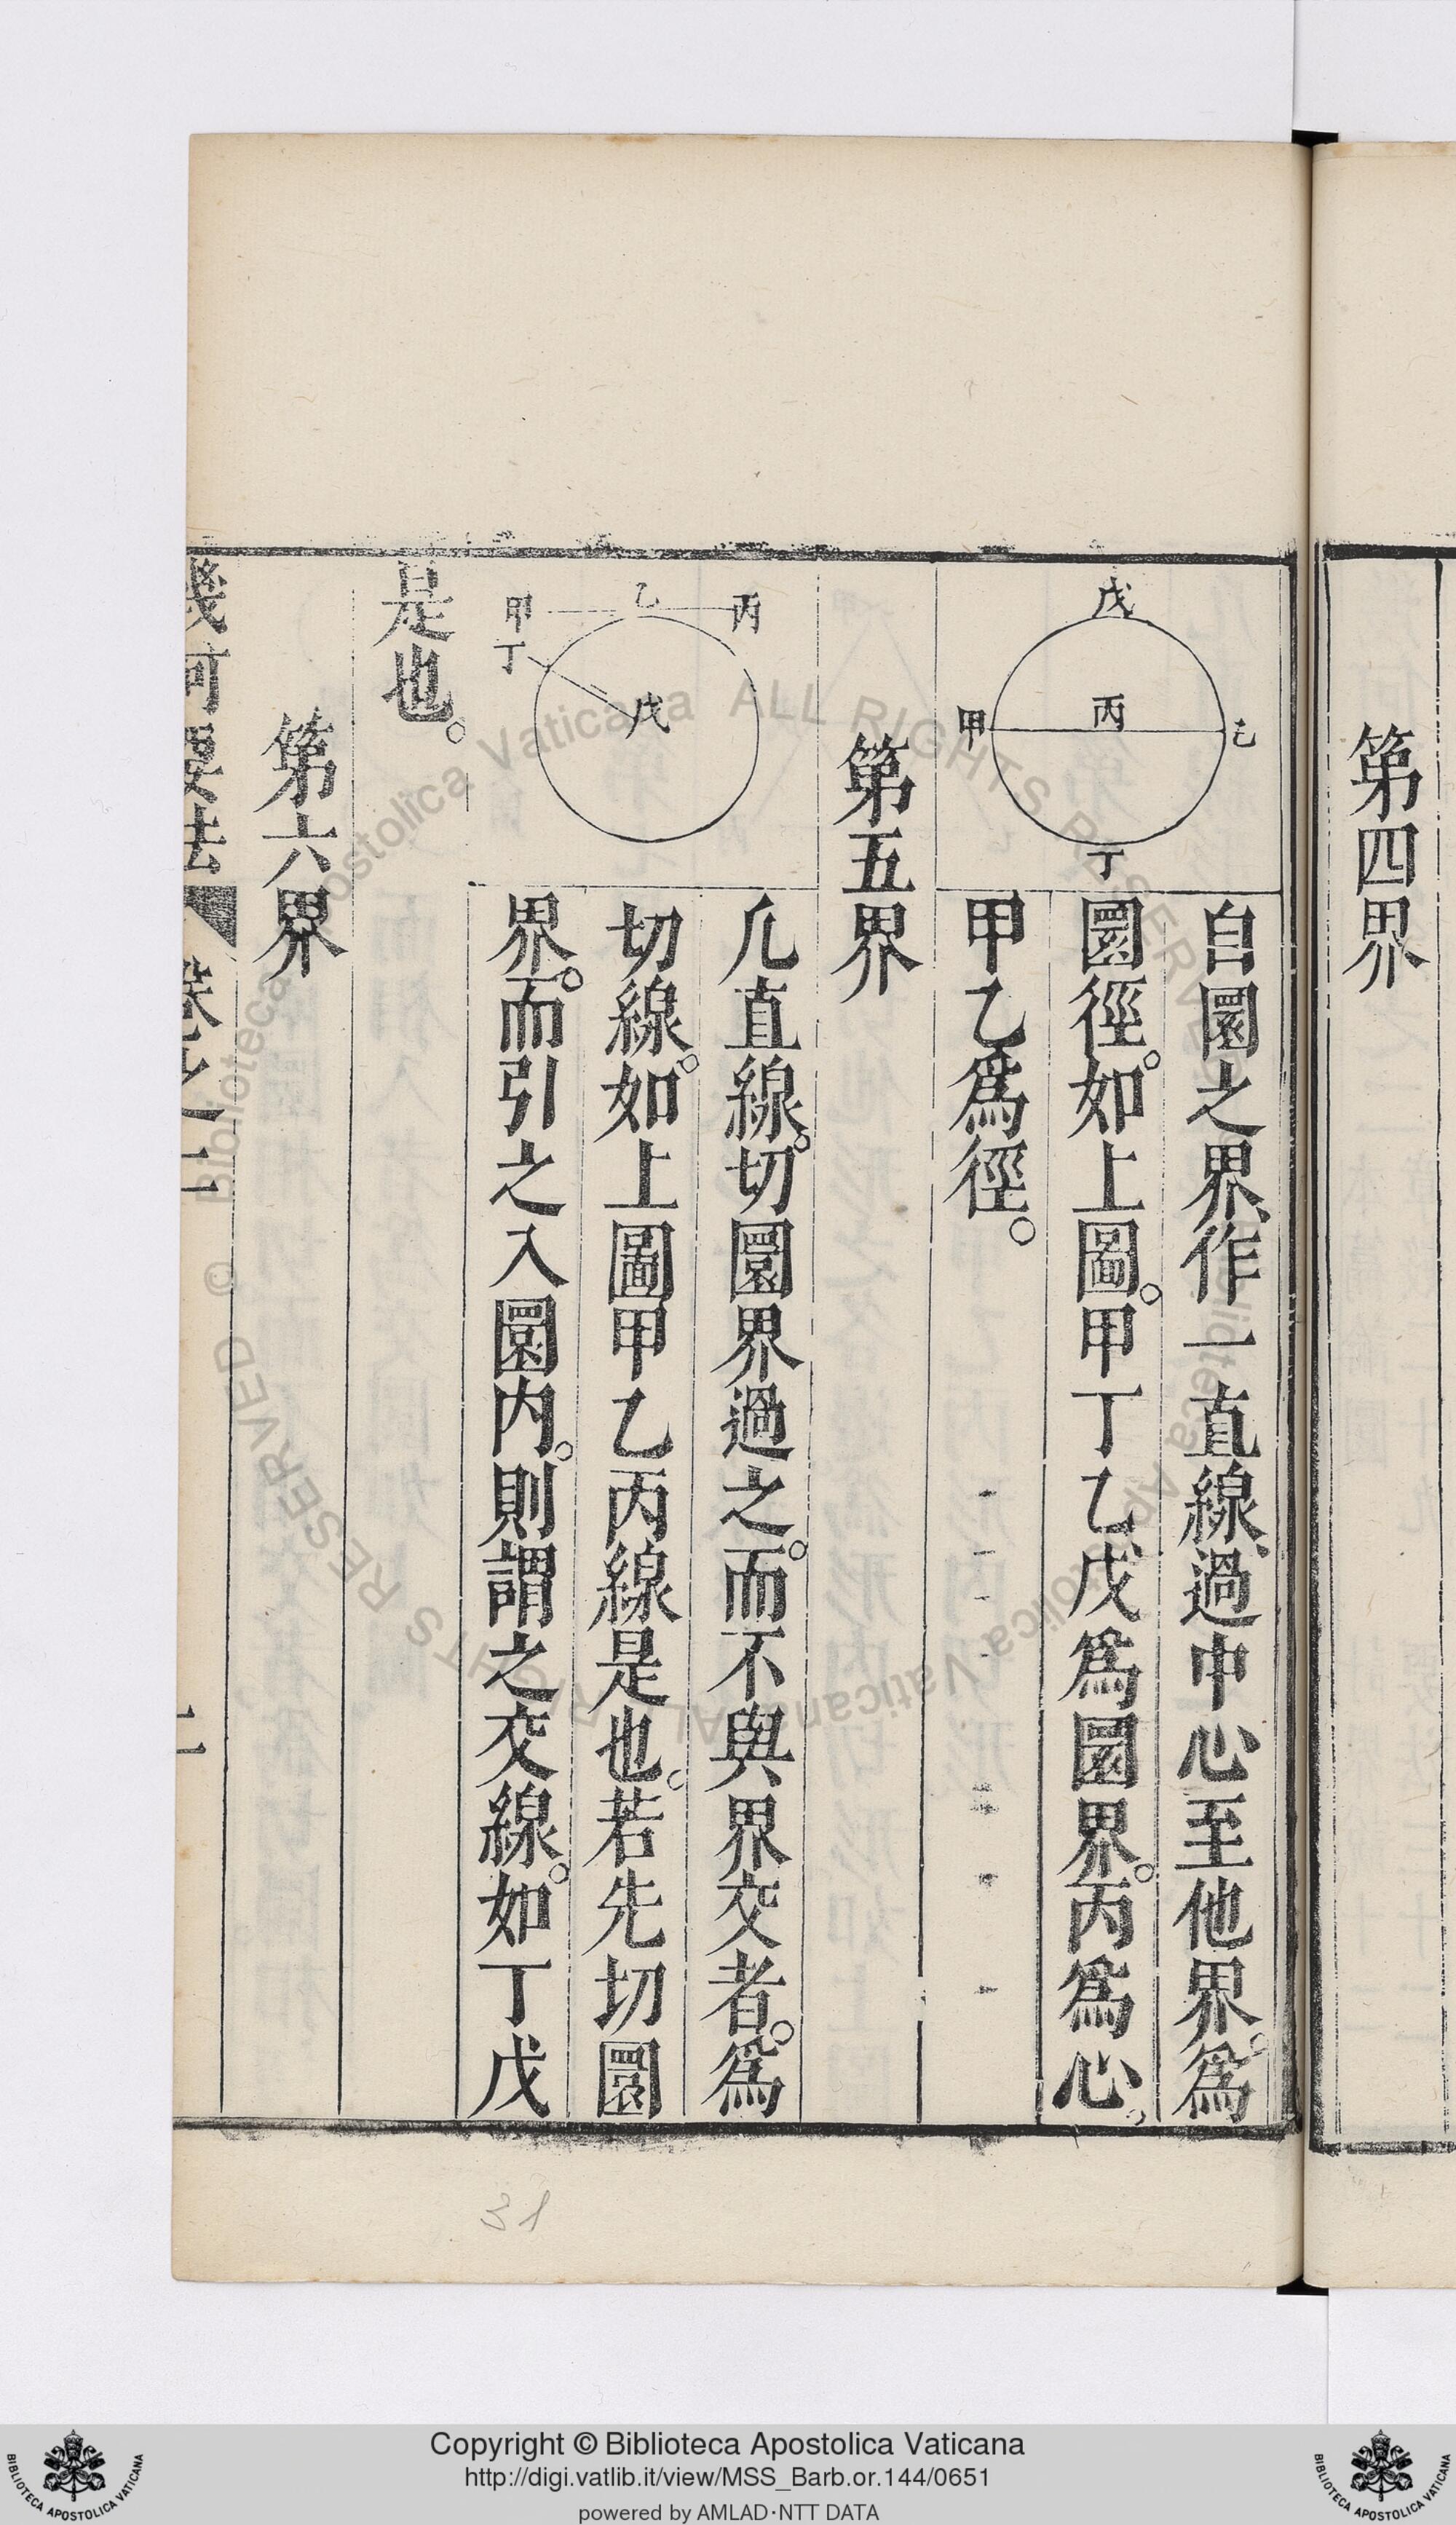 第四界
戊
甲
丙
乙
丁
自圜之界、作一直線、過中心至他界。爲
圜徑。如上圖。甲丁乙戊爲圜界。丙爲心。
甲乙爲徑。
第五界
甲
乙
丙
丁
戊
凡直線。切圜界過之。而不與界交者。爲
切線。如上圖甲乙丙線是也。若先切圜
界。而引之入圜内。則謂之交線。如丁戊
是也。
第六界
幾何要法
卷之二
二
31
© Biblioteca Apostolica Vaticana ALL RIGHTS RESERVED
© Biblioteca Apostolica Vaticana ALL RIGHTS RESERVED
Copyright © Biblioteca Apostolica Vaticana
http://digi.vatlib.it/view/MSS_Barb.or.144/0651
powered by AMLAD·NTT DATA
BIBLIOTECA APOSTOLICA VATICANA
BIBLIOTECA APOSTOLICA VATICANA